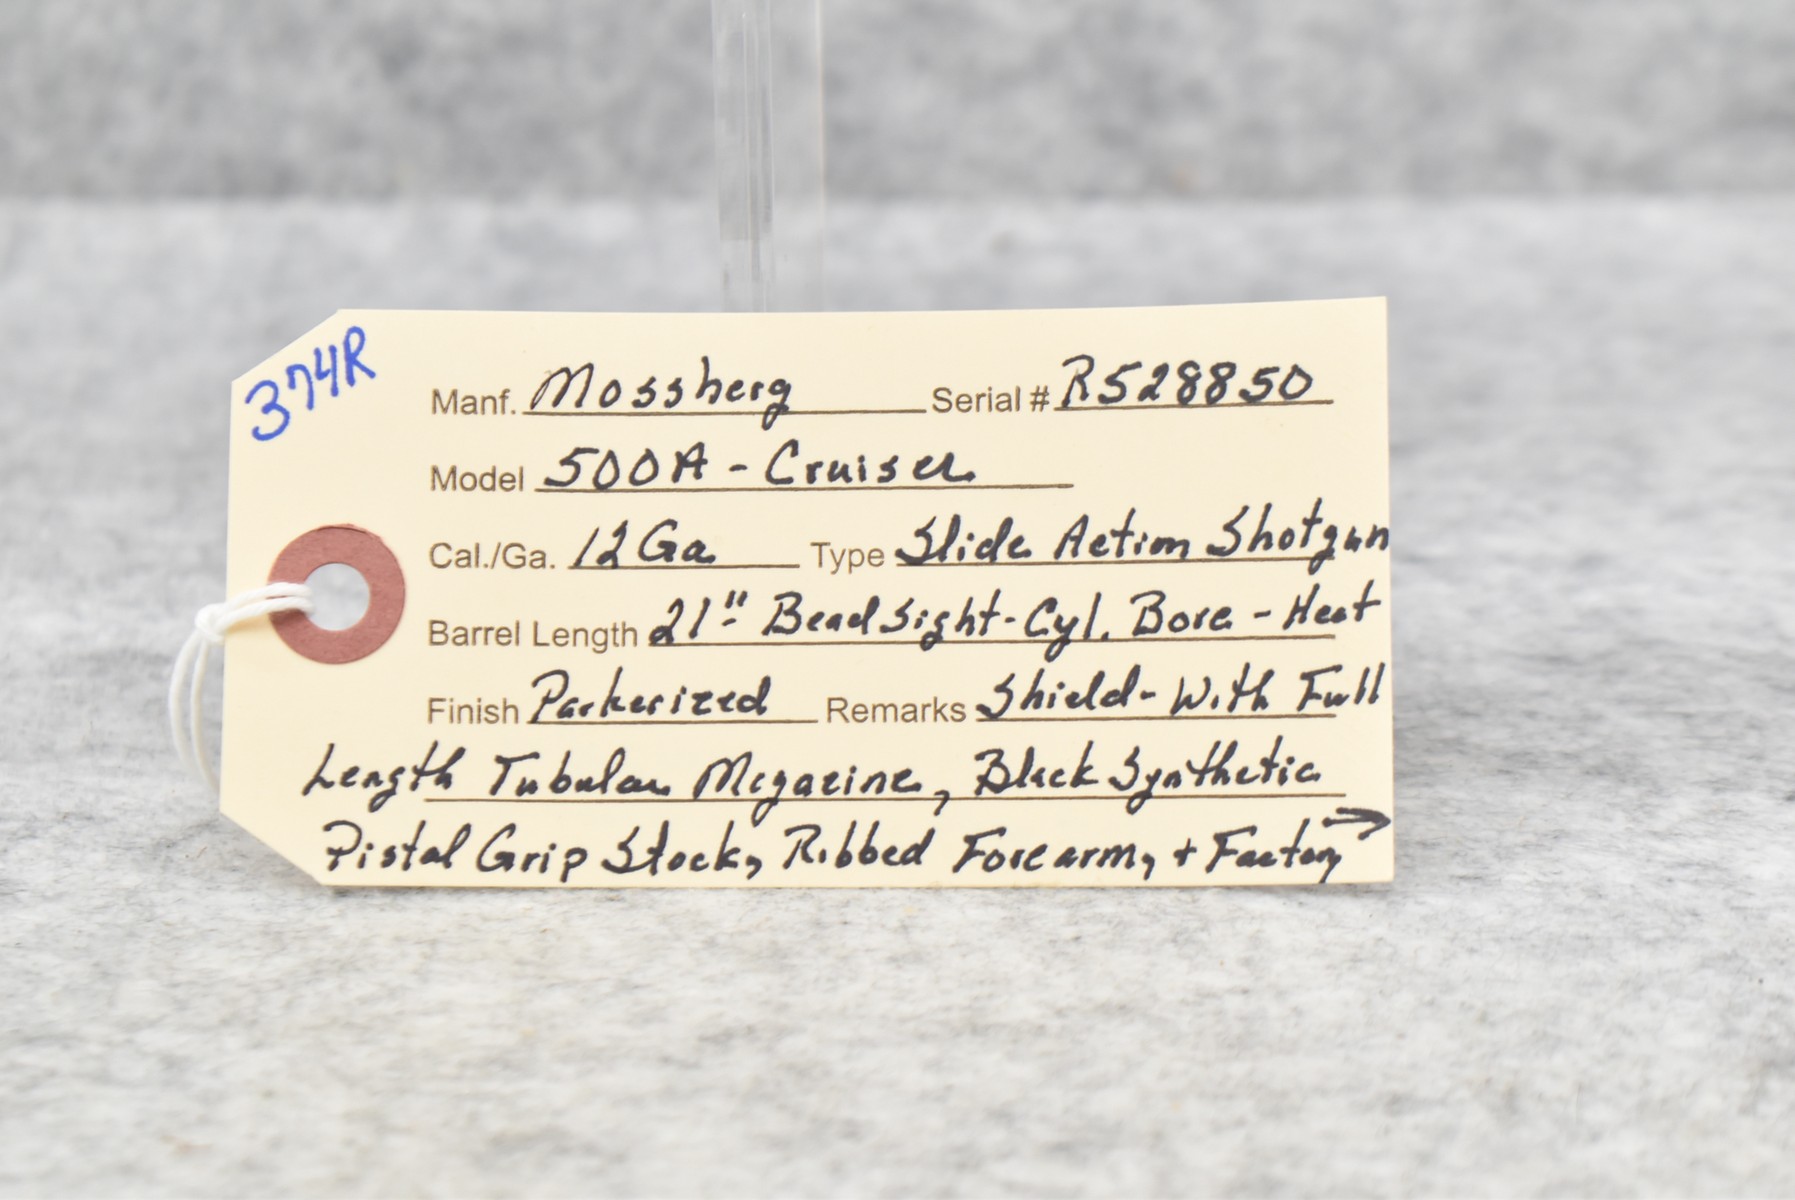 374R
Manf. Mossberg Serial # R528850
Model 500A - Cruiser
Cal./Ga. 12 Ga Type Slide Action Shotgun
Barrel Length 21" Bead Sight - Cyl. Bore - Heat
Finish Parkerized Remarks Shield - With Full
Length Tubular Magazine, Black Synthetic
Pistol Grip Stock, Ribbed Forearm, + Factory →